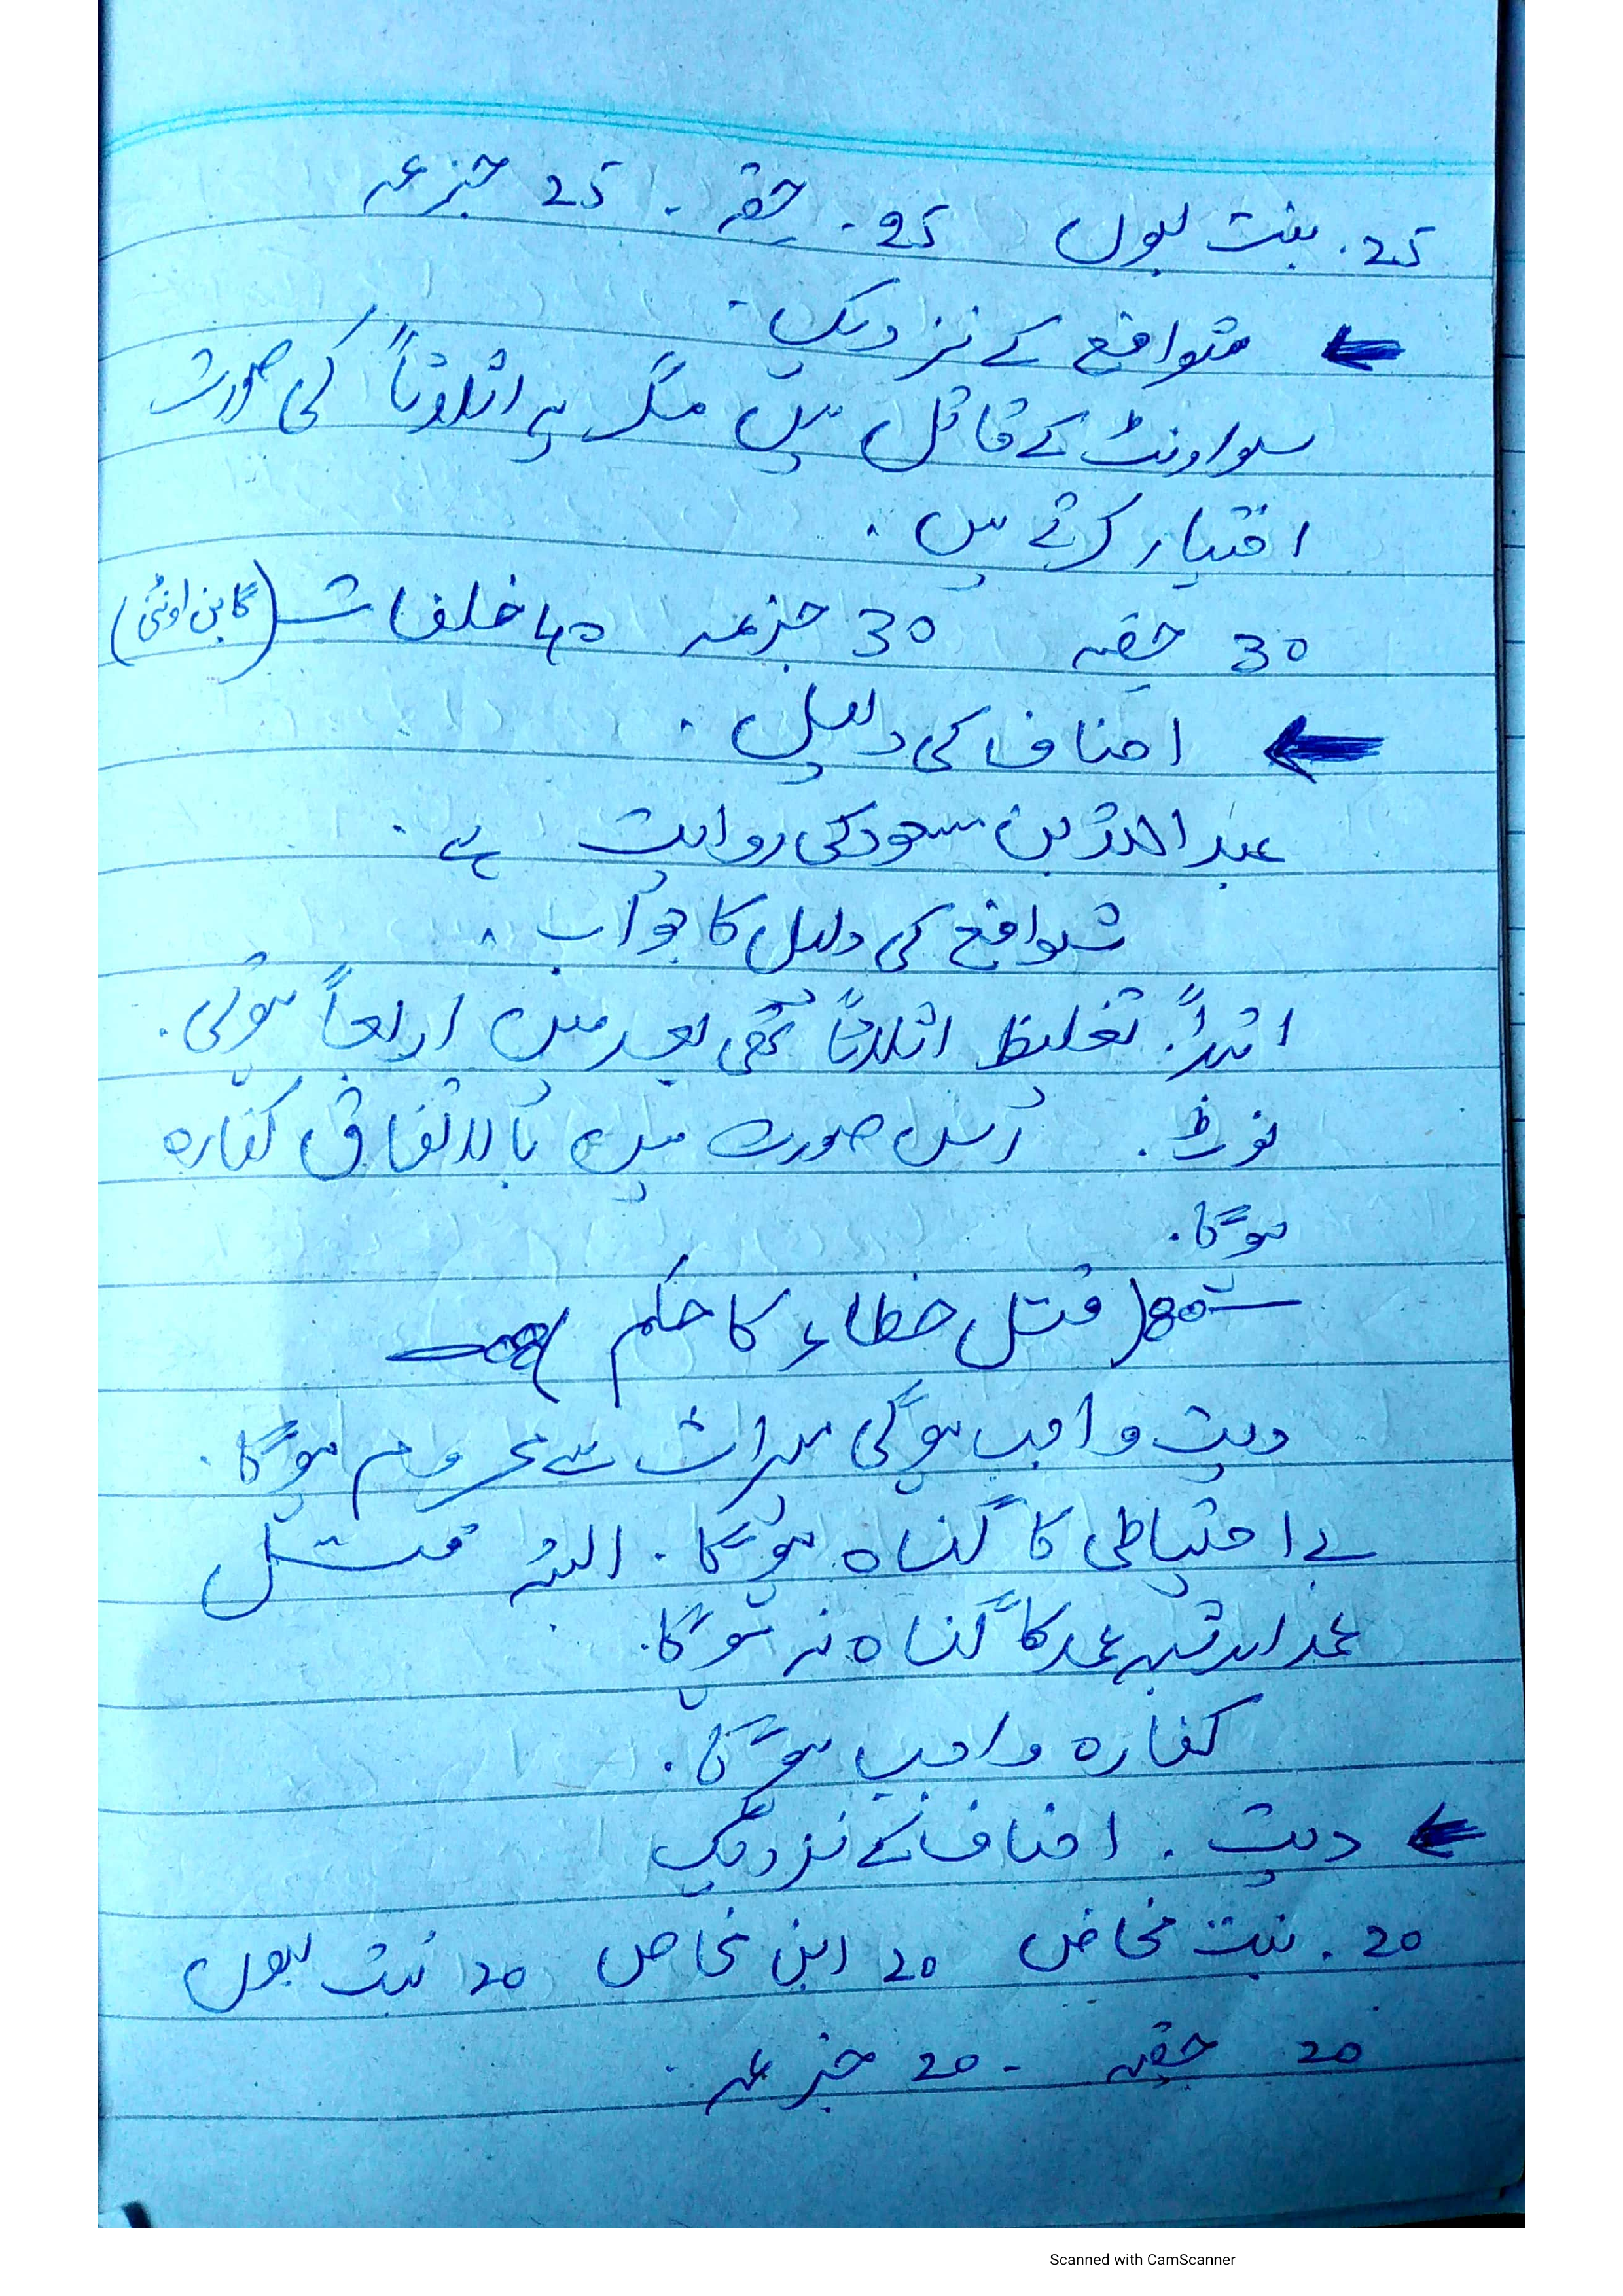 25. بنت لبون 25. حقہ. 25 جزعہ
شوافع کے نزدیک.
سو اونٹ کے قائل ہیں مگر یہ اثلاثاً کی صورت
اختیار کرتے ہیں.
30 حقہ 30 جزعہ 40 خلفات (گابن اونٹنی)
احناف کی دلیل.
عبداللہ بن مسعود کی روایت ہے.
شوافع کی دلیل کا جواب.
ابتداً. تغلیظ اثلاثاً تھی بعد میں ارباعاً ہوئی.
نوٹ. اس صورت میں بالاتفاق کفارہ
ہوگا.
قتل خطاء کا حکم
دیت واجب ہوگی میراث سے محروم ہوگا.
بے احتیاطی کا گناہ ہوگا. البتہ قتل
عمد اور شبہ عمد کا گناہ نہ ہوگا.
کفارہ واجب ہوگا.
دیت. احناف کے نزدیک
20. بنت مخاض 20 ابن مخاض 20 بنت لبون
20 حقہ - 20 جزعہ.
Scanned with CamScanner